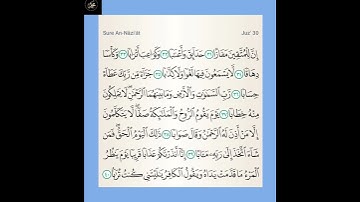 Sure An-Nâzi'ât Juz' 30
إِنَّ لِلْمُتَّقِينَ مَفَازًا ﴿٣١﴾ حَدَائِقَ وَأَعْنَابًا ﴿٣٢﴾ وَكَوَاعِبَ أَتْرَابًا ﴿٣٣﴾ وَكَأْسًا
دِهَاقًا ﴿٣٤﴾ لَا يَسْمَعُونَ فِيهَا لَغْوًا وَلَا كِذَّابًا ﴿٣٥﴾ جَزَاءً مِنْ رَبِّكَ عَطَاءً
حِسَابًا ﴿٣٦﴾ رَبِّ السَّمٰوَاتِ وَالْأَرْضِ وَمَا بَيْنَهُمَا الرَّحْمٰنِ لَا يَمْلِكُونَ
مِنْهُ خِطَابًا ﴿٣٧﴾ يَوْمَ يَقُومُ الرُّوحُ وَالْمَلٰئِكَةُ صَفًّا لَا يَتَكَلَّمُونَ
إِلَّا مَنْ أَذِنَ لَهُ الرَّحْمٰنُ وَقَالَ صَوَابًا ﴿٣٨﴾ ذٰلِكَ الْيَوْمُ الْحَقُّ فَمَنْ
شَاءَ اتَّخَذَ إِلَى رَبِّهِ مَآبًا ﴿٣٩﴾ إِنَّا أَنْذَرْنَاكُمْ عَذَابًا قَرِيبًا يَوْمَ يَنْظُرُ
الْمَرْءُ مَا قَدَّمَتْ يَدَاهُ وَيَقُولُ الْكَافِرُ يَالَيْتَنِي كُنْتُ تُرَابًا ﴿٤٠﴾